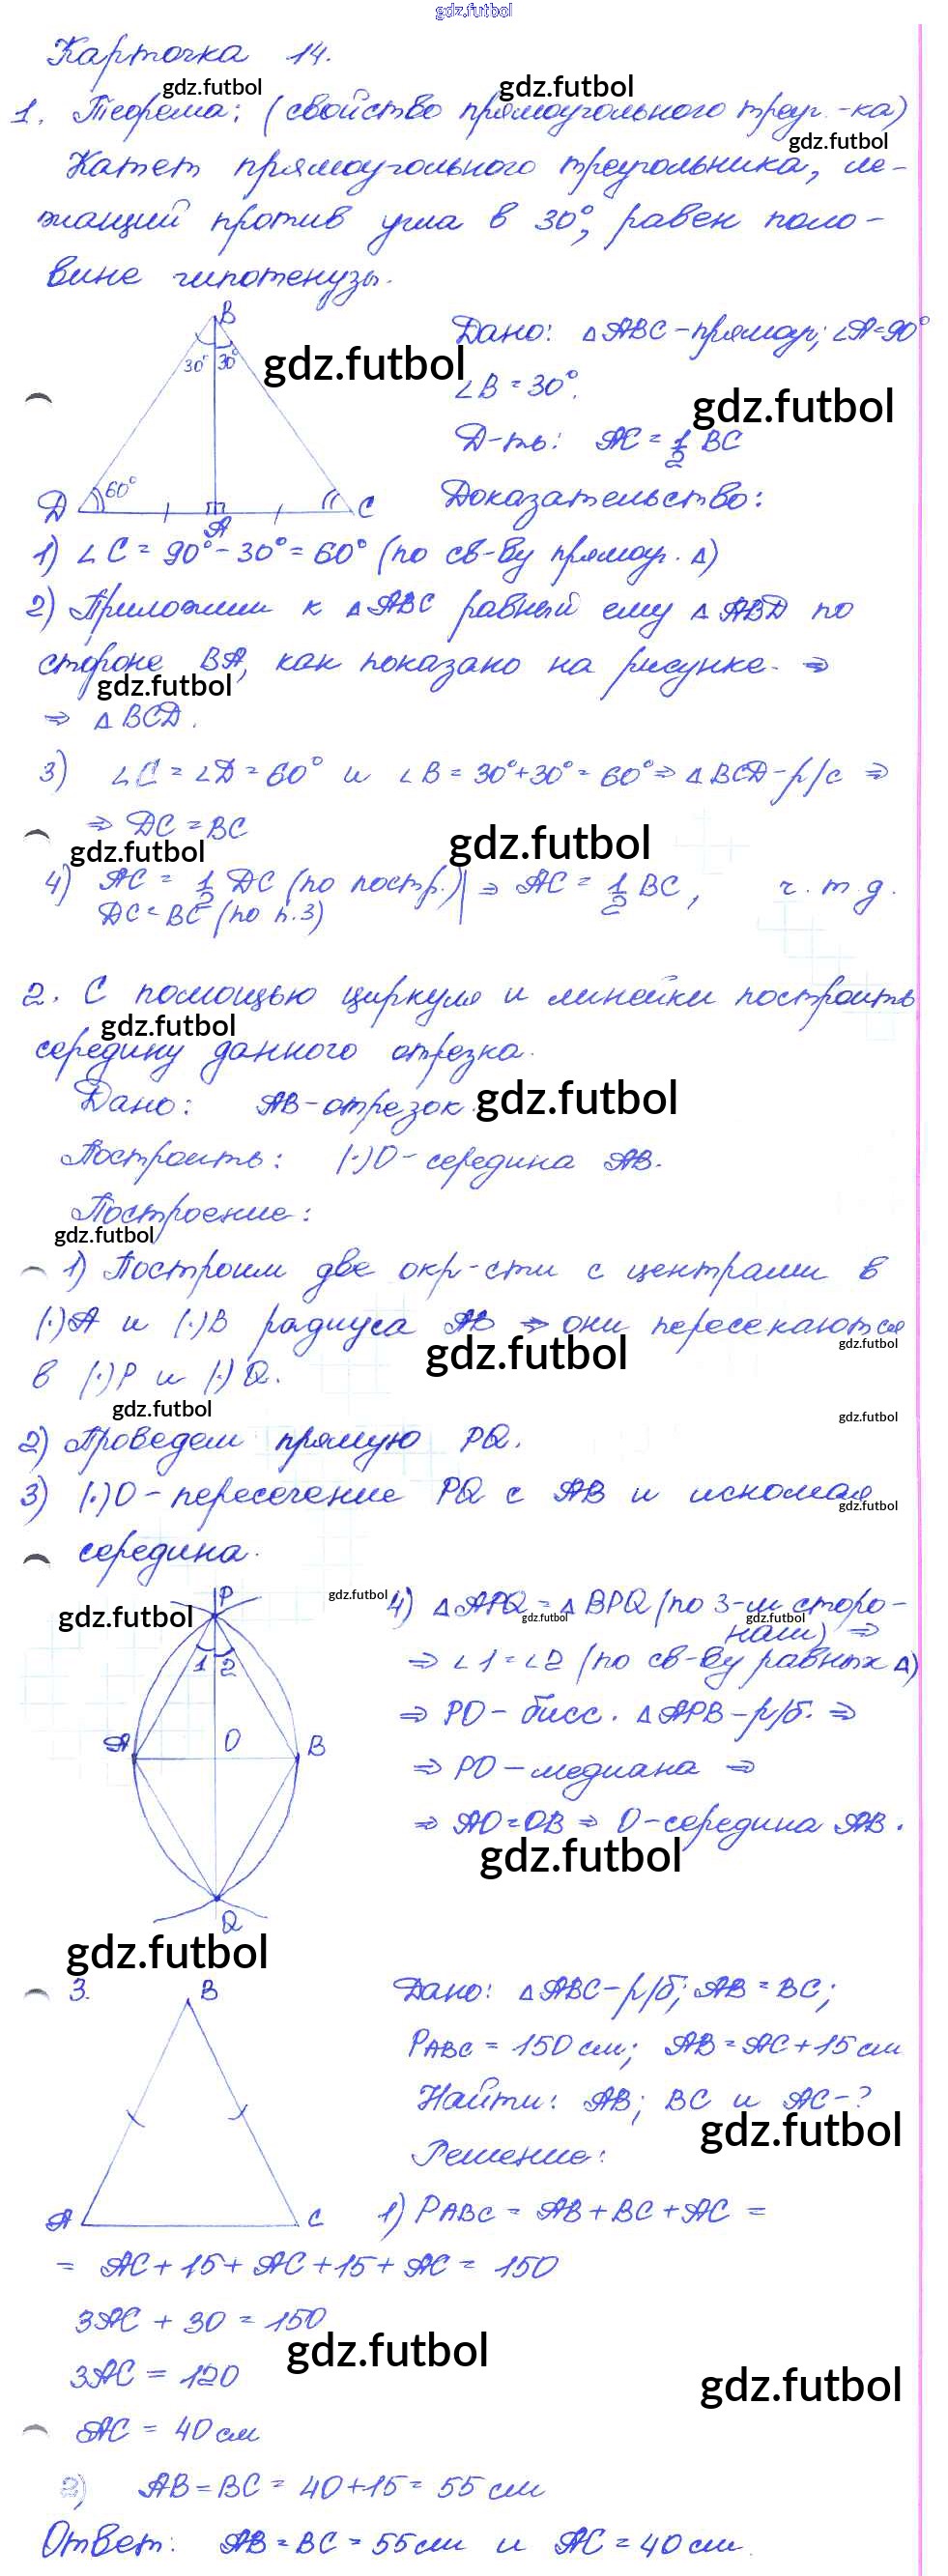 gdz.futbol
Карточка 14.
gdz.futbol gdz.futbol
1. Теорема: (свойство прямоугольного треуг.-ка)
gdz.futbol
Катет прямоугольного треугольника, ле-
жащий против угла в 30°, равен поло-
вине гипотенузы.
B
30° 30°
D 60° A C
gdz.futbol
Дано: △ABC-прямоуг; ∠A=90°
∠B = 30°.
gdz.futbol
Д-ть: AC = 1/2 BC
Доказательство:
1) ∠C = 90° - 30° = 60° (по св-ву прямоуг. △)
2) Приложим к △ABC равный ему △ABD по
стороне BA, как показано на рисунке. ⇒
gdz.futbol
⇒ △BCD.
3) ∠C = ∠D = 60° и ∠B = 30°+30° = 60° ⇒ △BCD-р/с ⇒
⇒ DC = BC
gdz.futbol gdz.futbol
4) AC = 1/2 DC (по постр.) | ⇒ AC = 1/2 BC, ч.т.д.
DC = BC (по п.3)
2. С помощью циркуля и линейки построить
gdz.futbol
середину данного отрезка.
Дано: AB-отрезок.
gdz.futbol
Построить: (·)O- середина AB.
Построение:
gdz.futbol
1) Построим две окр-сти с центрами в
(·)A и (·)B радиуса AB ⇒ они пересекаются
gdz.futbol gdz.futbol
в (·)P и (·)Q.
gdz.futbol gdz.futbol
2) Проведем прямую PQ.
3) (·)O - пересечение PQ с AB и искомая
gdz.futbol
середина.
P
1 2
A O B
Q
gdz.futbol gdz.futbol
4) △APQ = △BPQ (по 3-м сторо-
gdz.futbol gdz.futbol
нам) ⇒
⇒ ∠1 = ∠2 (по св-ву равных △)
⇒ PO - бисс. △APB-р/б. ⇒
⇒ PO - медиана ⇒
⇒ AO = OB ⇒ O-середина AB.
gdz.futbol
gdz.futbol
3.
B
A C
Дано: △ABC-р/б; AB = BC;
PABC = 150 см; AB = AC + 15 см
Найти: AB; BC и AC-?
gdz.futbol
Решение:
1) PABC = AB + BC + AC =
= AC + 15 + AC + 15 + AC = 150
3AC + 30 = 150
gdz.futbol
3AC = 120
gdz.futbol
AC = 40 см
2) AB = BC = 40+15 = 55 см
Ответ: AB = BC = 55 см и AC = 40 см.